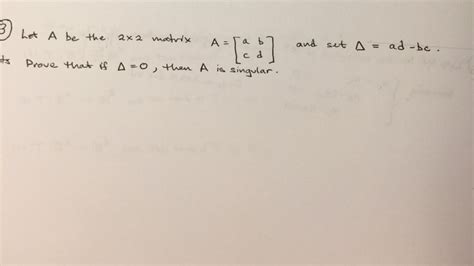 3) Let A be the 2x2 matrix A = [a b
c d] and set Δ = ad-bc.
ts Prove that if Δ=0, then A is singular.